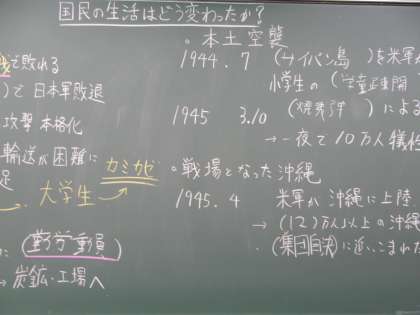 国民の生活はどう変わったか?
で敗れる
)で 日本軍敗退
攻撃 本格化
輸送が困難に
足
大学生 → カミカゼ
(勤労動員)
→ 炭鉱・工場へ
。本土空襲
1944.7 (サイパン島 )を米軍が
小学生の (学童疎開
1945 3.10 (焼夷弾 )による
→ 一夜で10万人犠牲
。戦場となった沖縄
1945.4 米軍が 沖縄に上陸
→ (12)万人以上の沖縄
(集団自決)に追いこまれた